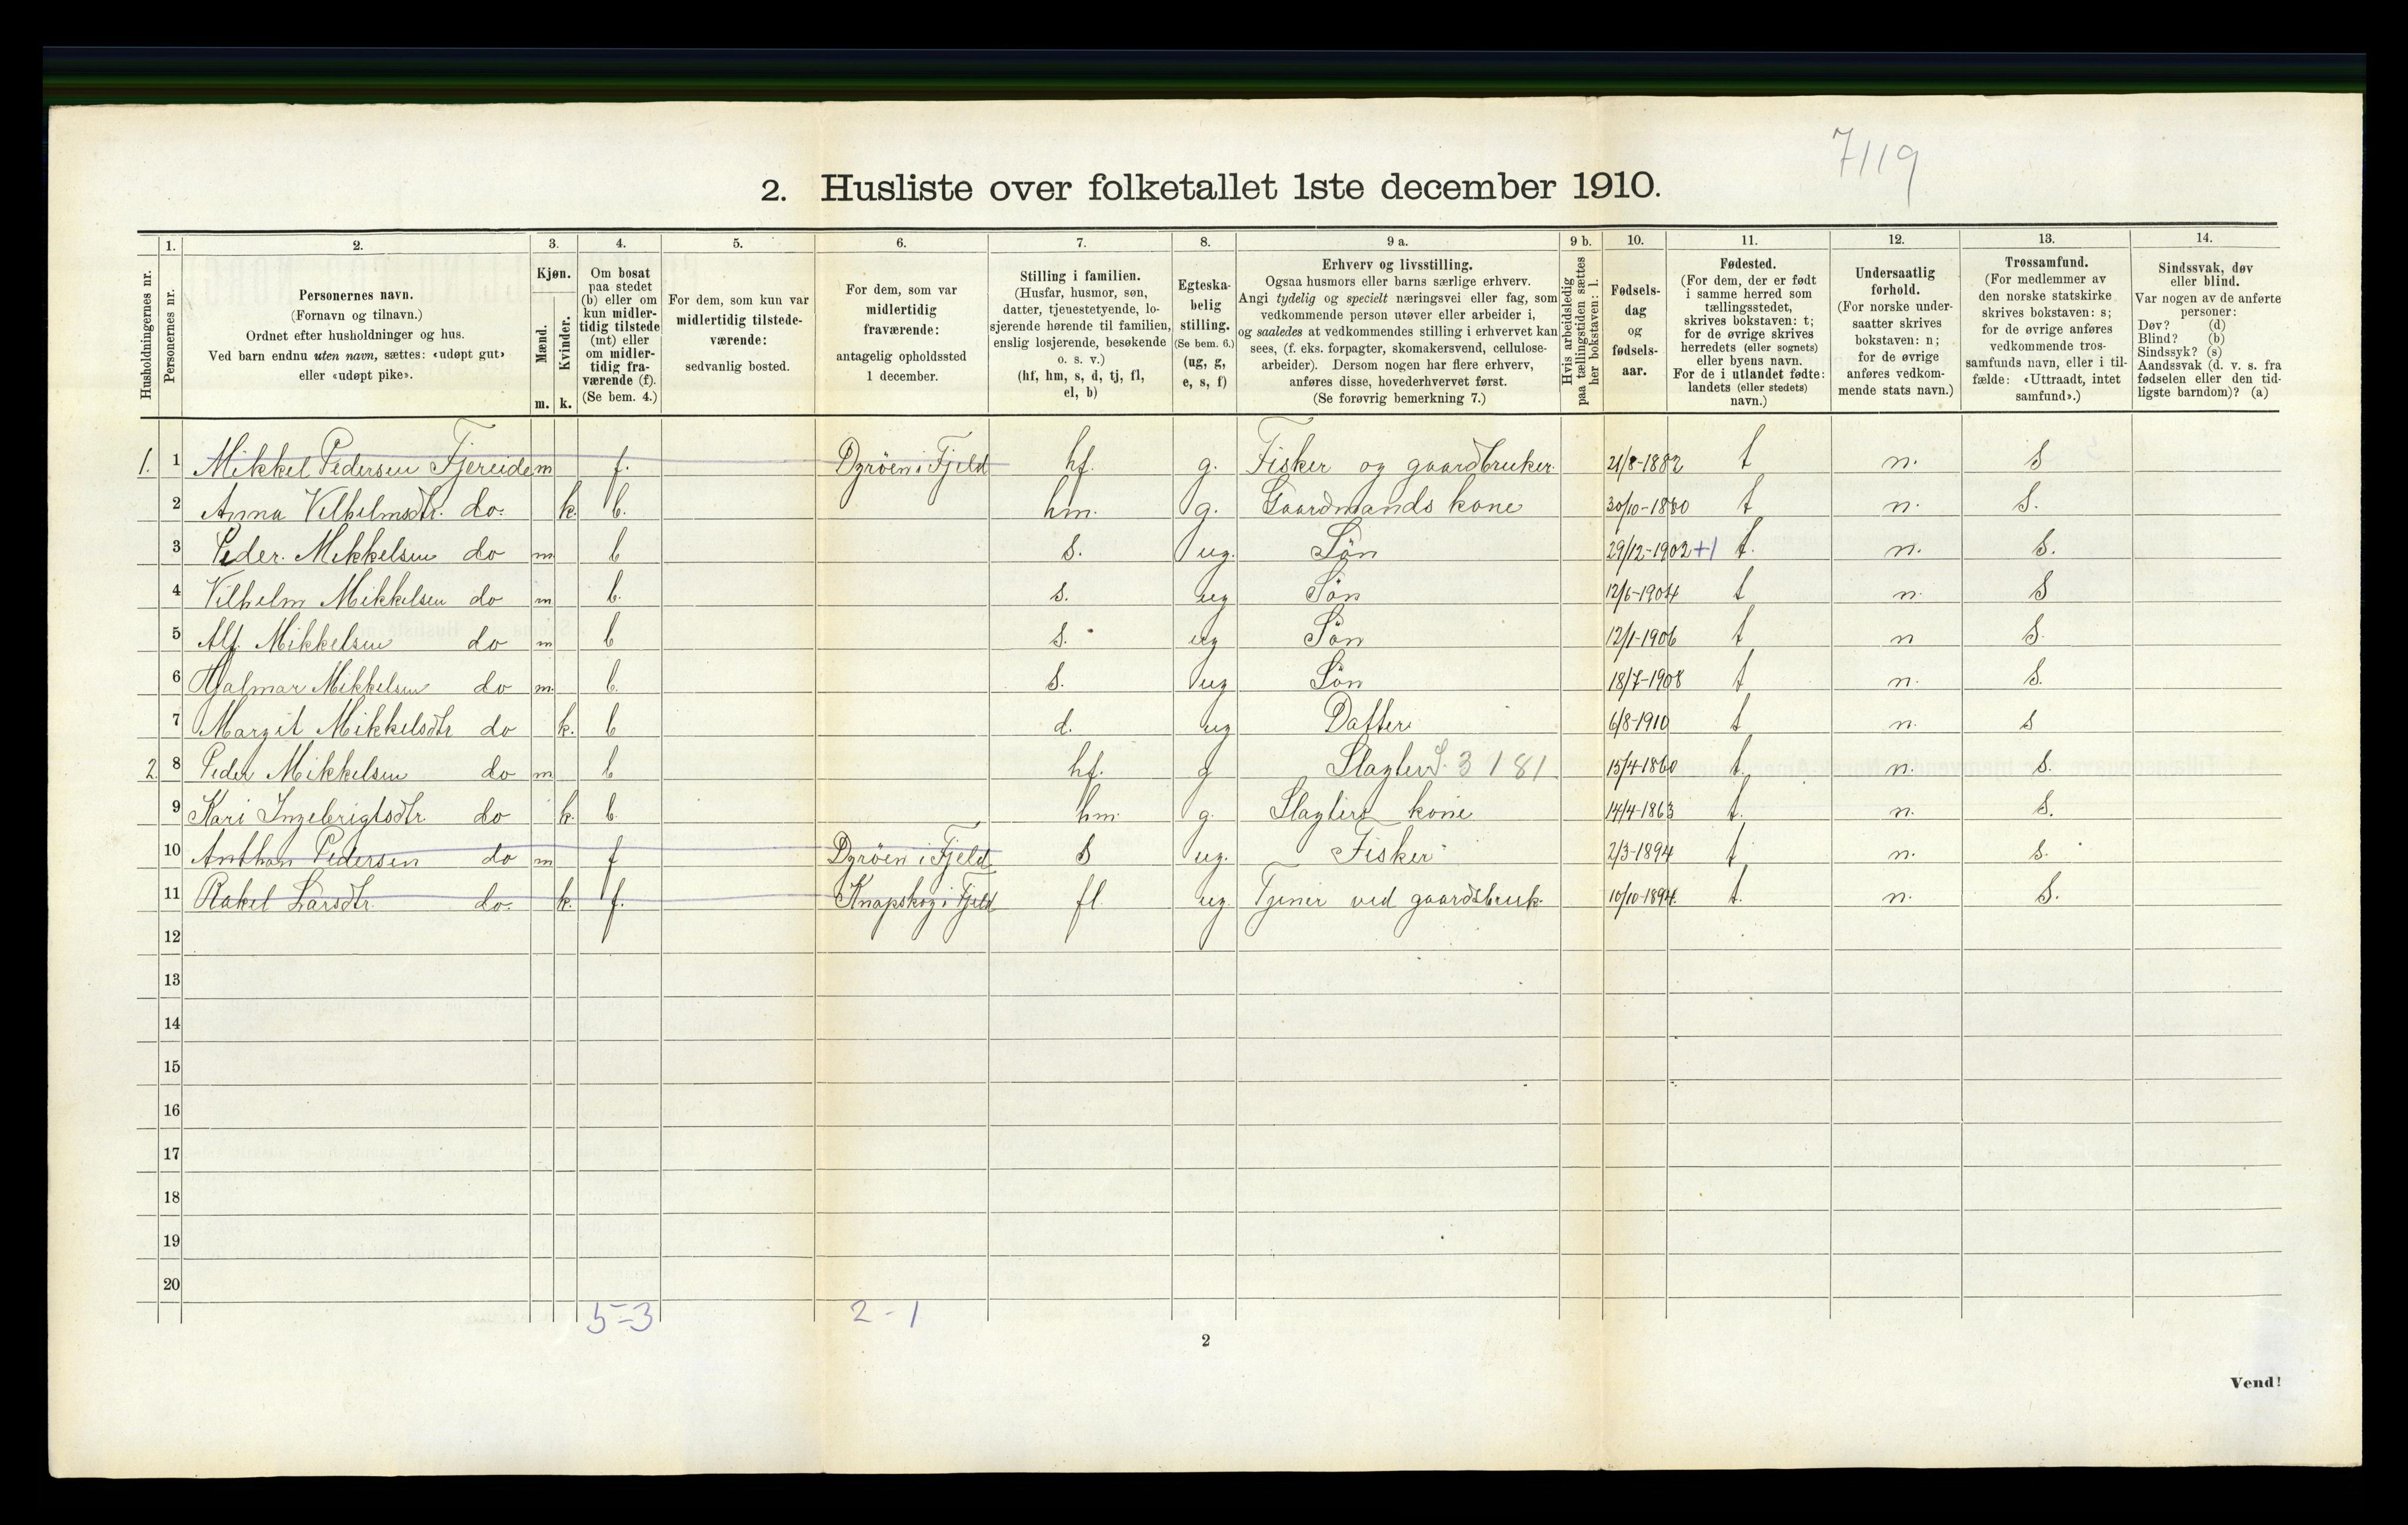 7119
2. Husliste over folketallet 1ste december 1910.
Husholdningernes nr.
1. Personernes nr.
2. Personernes navn. (Fornavn og tilnavn.) Ordnet efter husholdninger og hus. Ved barn endnu uten navn, sættes: «udøpt gut» eller «udøpt pike».
3. Kjøn. Mænd. m. Kvinder. k.
4. Om bosat paa stedet (b) eller om kun midlertidig tilstede (mt) eller om midlertidig fraværende (f). (Se bem. 4.)
5. For dem, som kun var midlertidig tilstedeværende: sedvanlig bosted.
6. For dem, som var midlertidig fraværende: antagelig opholdssted 1 december.
7. Stilling i familien. (Husfar, husmor, søn, datter, tjenestetyende, losjerende hørende til familien, enslig losjerende, besøkende o. s. v.) (hf, hm, s, d, tj, fl, el, b)
8. Egteskabelig stilling. (Se bem. 6.) (ug, g, e, s, f)
9 a. Erhverv og livsstilling. Ogsaa husmors eller barns særlige erhverv. Angi tydelig og specielt næringsvei eller fag, som vedkommende person utøver eller arbeider i, og saaledes at vedkommendes stilling i erhvervet kan sees, (f. eks. forpagter, skomakersvend, cellulosearbeider). Dersom nogen har flere erhverv, anføres disse, hovederhvervet først. (Se forøvrig bemerkning 7.)
9 b. Hvis arbeidsledig paa tællingstiden sættes her bokstaven: l.
10. Fødselsdag og fødselsaar.
11. Fødested. (For dem, der er født i samme herred som tællingsstedet, skrives bokstaven: t; for de øvrige skrives herredets (eller sognets) eller byens navn. For de i utlandet fødte: landets (eller stedets) navn.)
12. Undersaatlig forhold. (For norske undersaatter skrives bokstaven: n; for de øvrige anføres vedkommende stats navn.)
13. Trossamfund. (For medlemmer av den norske statskirke skrives bokstaven: s; for de øvrige anføres vedkommende trossamfunds navn, eller i tilfælde: «Uttraadt, intet samfund».)
14. Sindssvak, døv eller blind. Var nogen av de anførte personer: Døv? (d) Blind? (b) Sindssyk? (s) Aandssvak (d. v. s. fra fødselen eller den tidligste barndom)? (a)
1. 1 Mikkel Pedersen Fjereide m f. Dyröen i Fjeld hf. g. Fisker og gaardbruker. 21/8-1882 t n. S
2 Anna Vilhelmsdtr. do. k. b. hm. g. Gaardmands kone 30/10-1880 t n. S.
3 Peder Mikkelsen do m b s. ug. Sön 29/12-1902 +1 t. n. S.
4 Vilhelm Mikkelsen do m b. s. ug Sön 12/6-1904 t n. S
5 Alf. Mikkelsen do m b s. ug Sön 12/1-1906 t n S.
6 Hjalmar Mikkelsen do m. b. s. ug Sön 18/7-1908 t n. S.
7 Margit Mikkelsdtr do k. b d. ug Datter 6/8-1910 t n. s
2. 8 Peder Mikkelsen do m b hf. g Slagter S. 3 1 81 15/4-1860 t. n. S.
9 Kari Ingebrigtsdtr do k. b. hm. g. Slagters kone 14/4-1863 t. n. S.
10 Anthon Pedersen do m f Dyröen i Fjeld s ug. Fisker 2/3-1894 t n. s.
11 Rakel Larsdtr. do. k. f. Knapskog i Fjeld fl ug Tjener ved gaardsbruk. 10/10-1894. t. n. S.
12
13
14
15
16
17
18
19
20
5-3 2-1
2
Vend!